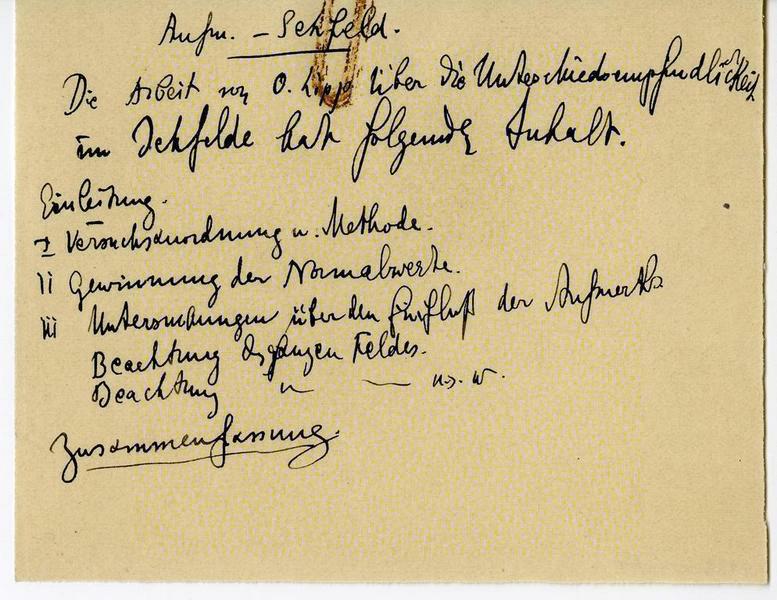 Aufm. – Sehfeld.
Die Arbeit von O. Lipp über die Unterschiedsempfindlichkeit
im Sehfelde hat folgende Inhalt.
Einleitung.
I Versuchsanordnung u. Methode.
II Gewinnung der Normalwerte.
III Untersuchungen über den Einfluß der Aufmerks.
Beachtung des ganzen Feldes.
Beachtung " — u.s.w.
Zusammenfassung.